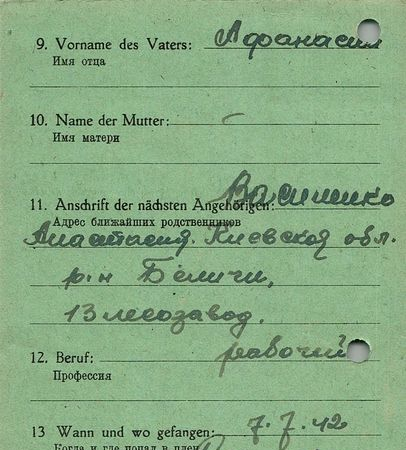 9. Vorname des Vaters: Афанасий
Имя отца
10. Name der Mutter: –
Имя матери
11. Anschrift der nächsten Angehörigen: Василенко
Адрес ближайших родственников
Анастасия. Киевская обл.
р-н Беличи,
13 лесозавод.
12. Beruf: рабочий
Профессия
13 Wann und wo gefangen: 7.7.42
Когда и где попал в плен